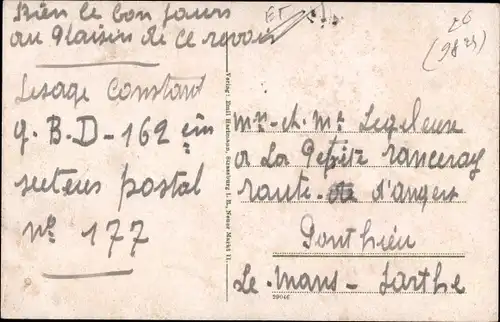 Bien le bon jours
au Plaisir de ce revoir
Lesage Constant
q. B. D - 162 ème
secteur postal
N° 177
Verlag: Emil Hartmann, Strassburg i. E., Neuer Markt 11.
Mr et Me Legeleux
a La Petite ranceray
route de d'angers
Ponthieu
Le Mans - Sarthe
29046
20
(98